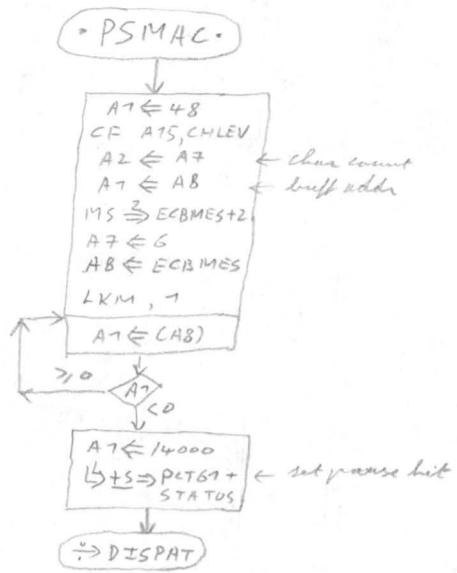 · PSMAC ·
A1 ⇐ 48
CF A15, CHLEV
A2 ⇐ A7 ← char count
A1 ⇐ A8 ← buff addr
MS 2⇒ ECBMES+2
A7 ⇐ 6
A8 ⇐ ECBMES
LKM, 1
A1 ⇐ (A8)
≥0
A1
<0
A1 ⇐ /4000
+S ⇒ PCT61+ ← set pause bit
STATUS
÷> DISPAT